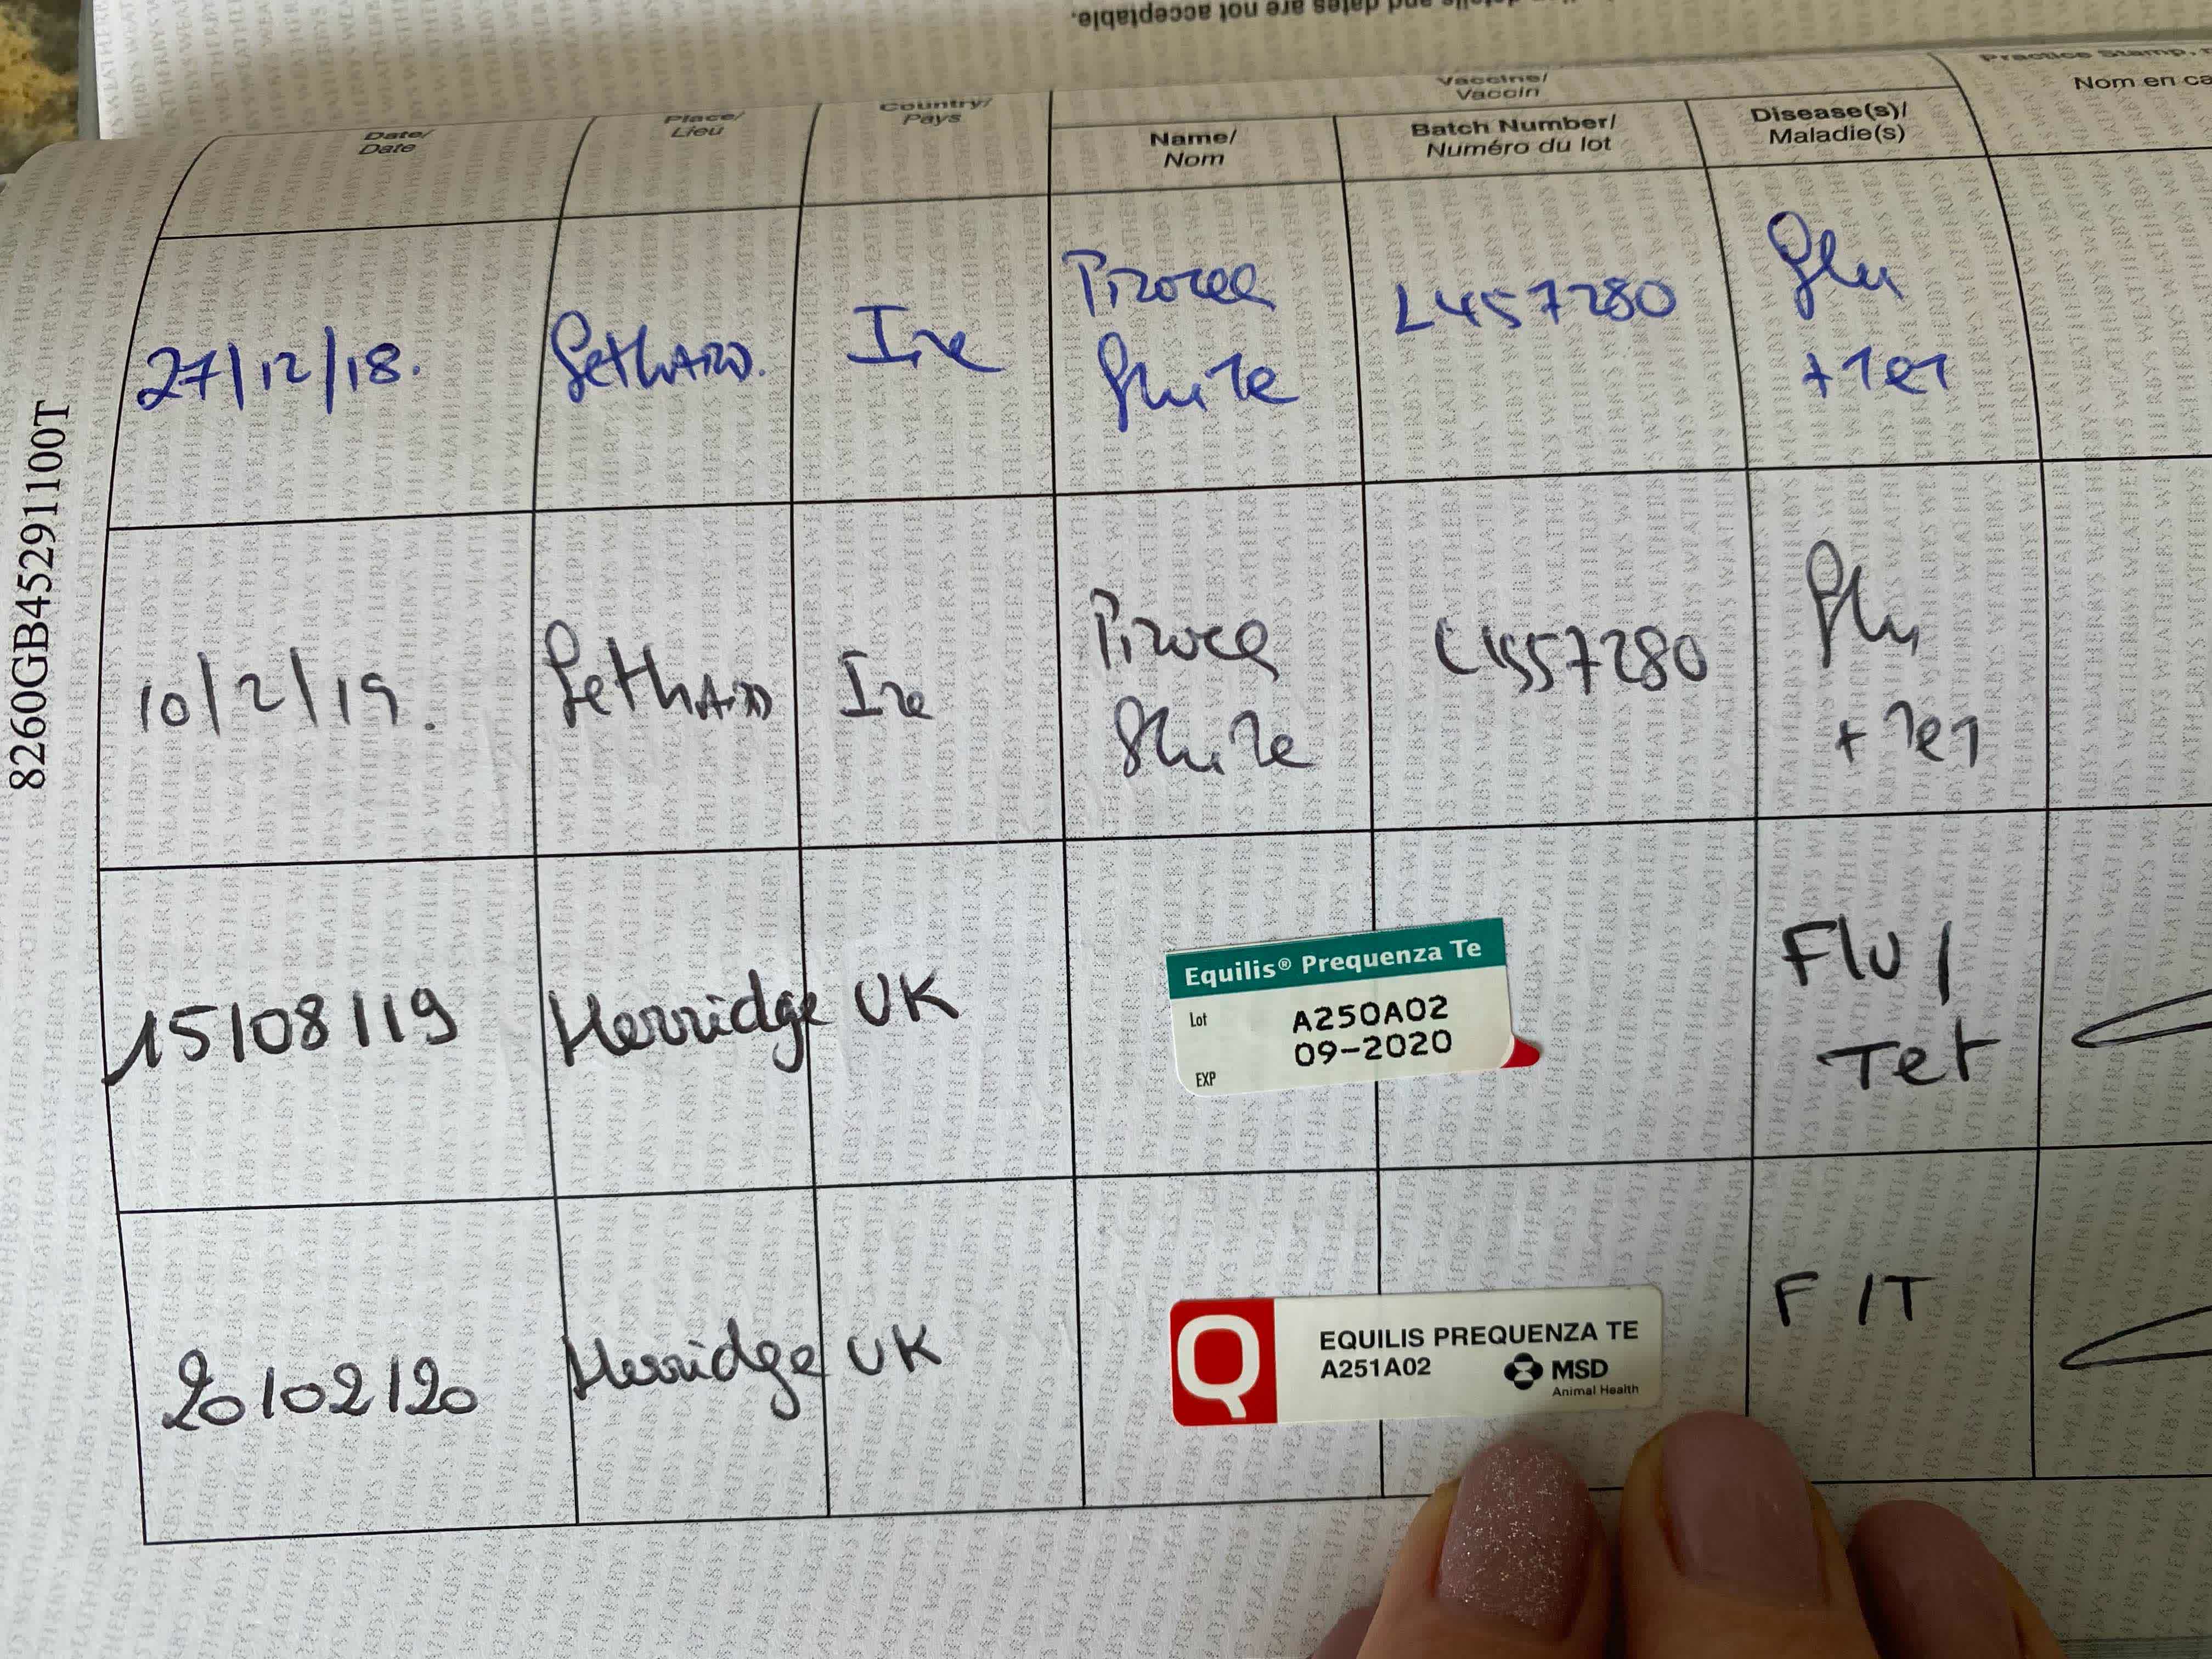 details and dates are not acceptable.
Practice Stamp,
Nom en ca
Vaccine/
Vaccin
Date/
Date
Place/
Lieu
Country/
Pays
Name/
Nom
Batch Number/
Numéro du lot
Disease(s)/
Maladie(s)
27/12/18.
Fethard.
Ire
Flu Te
L457280
Flu
+ Tet
10/2/19.
Fethard
Ire
Flu Te
Flu
+ Tet
15/08/19
Herridge
UK
Equilis® Prequenza Te
Lot A250A02
09-2020
EXP
Flu /
Tet
20/02/20
Herridge
UK
Q
EQUILIS PREQUENZA TE
A251A02 MSD
Animal Health
F/T
8260GB45291100T
WEATHERBYS